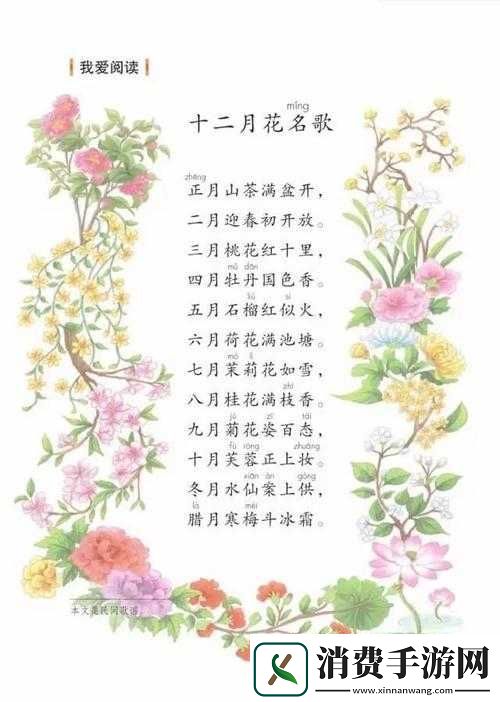 我爱阅读
míng
十二月花名歌
zhēng
正月山茶满盆开，
二月迎春初开放。
三月桃花红十里，
mǔ dān
四月牡丹国色香。
liú sì
五月石榴红似火，
六月荷花满池塘。
mò lì
七月茉莉花如雪，
zhī
八月桂花满枝香。
jú zī tài
九月菊花姿百态，
fú róng zhuāng
十月芙蓉正上妆。
xiān àn gòng
冬月水仙案上供，
là méi
腊月寒梅斗冰霜。
本文是民间歌谣。
消费手游网
www.xinnanwang.com